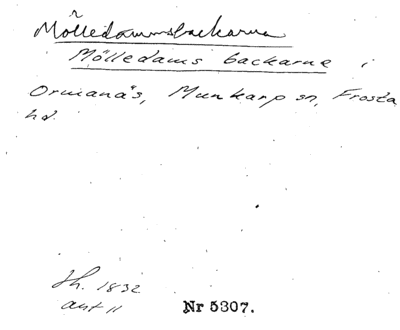 Mölledammsbackarna
Mölledams backarne i
Ormanäs, Munkarp sn, Frosta
hd.
Sh. 1832
akt 11
Nr 5307.